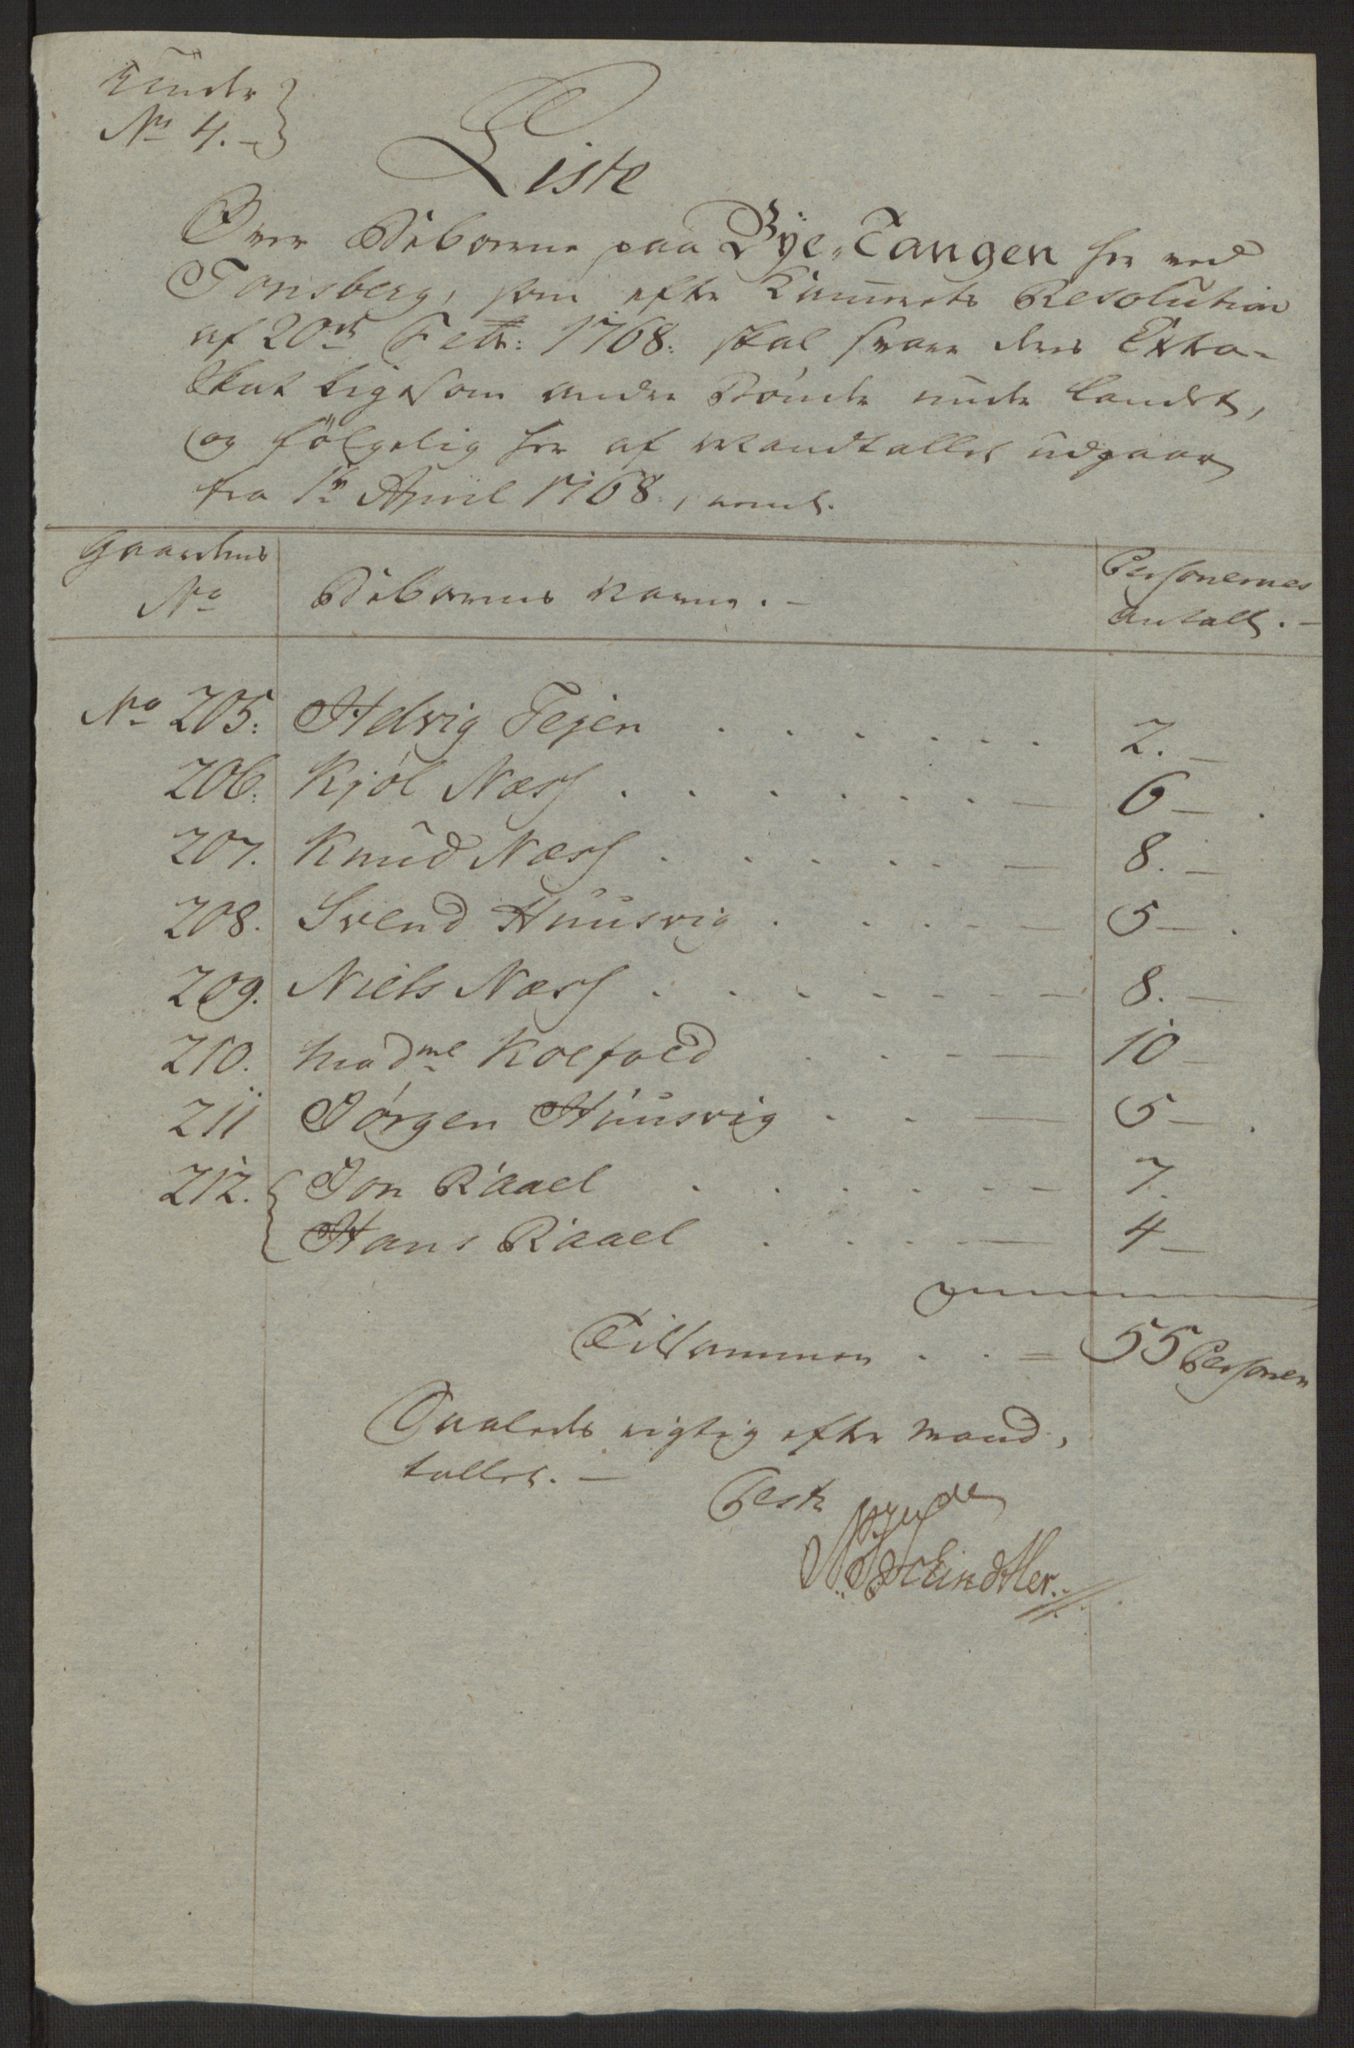 Under
No 4.
Liste
Over Beboerne paa Bÿe-Tangen her ved
Tønsberg, som efter Kammerets Resolution
af 20de Febr: 1768: skal svare deres Extra-
Skat ligesom andre Bønder under Landet,
og følgelig her af Mandtallet udgaar
fra 1te April 1768:, neml.
Gaardens
No
Beboernes Navne. -
Personernes
Antall. -
No 205: Helvig Fejen . . . . . . 2. -
206. Kjøl Næss . . . . . . - 6 -
207. Knud Næss . . . . . . - 8. -
208. Svend Huusvig . . . . - 5 -
209. Niels Næss . . . . . . - 8. -
210. Madme Koefoed . . . - 10 -
211 Jørgen Huusvig . . - 5 -
212. Jon Raael . . . . . . - 7.
Hans Raael . . . . - 4 -
Tilsammen . . = 55 Personer
Saaledes rigtig efter Mand-
tallet. -
Test